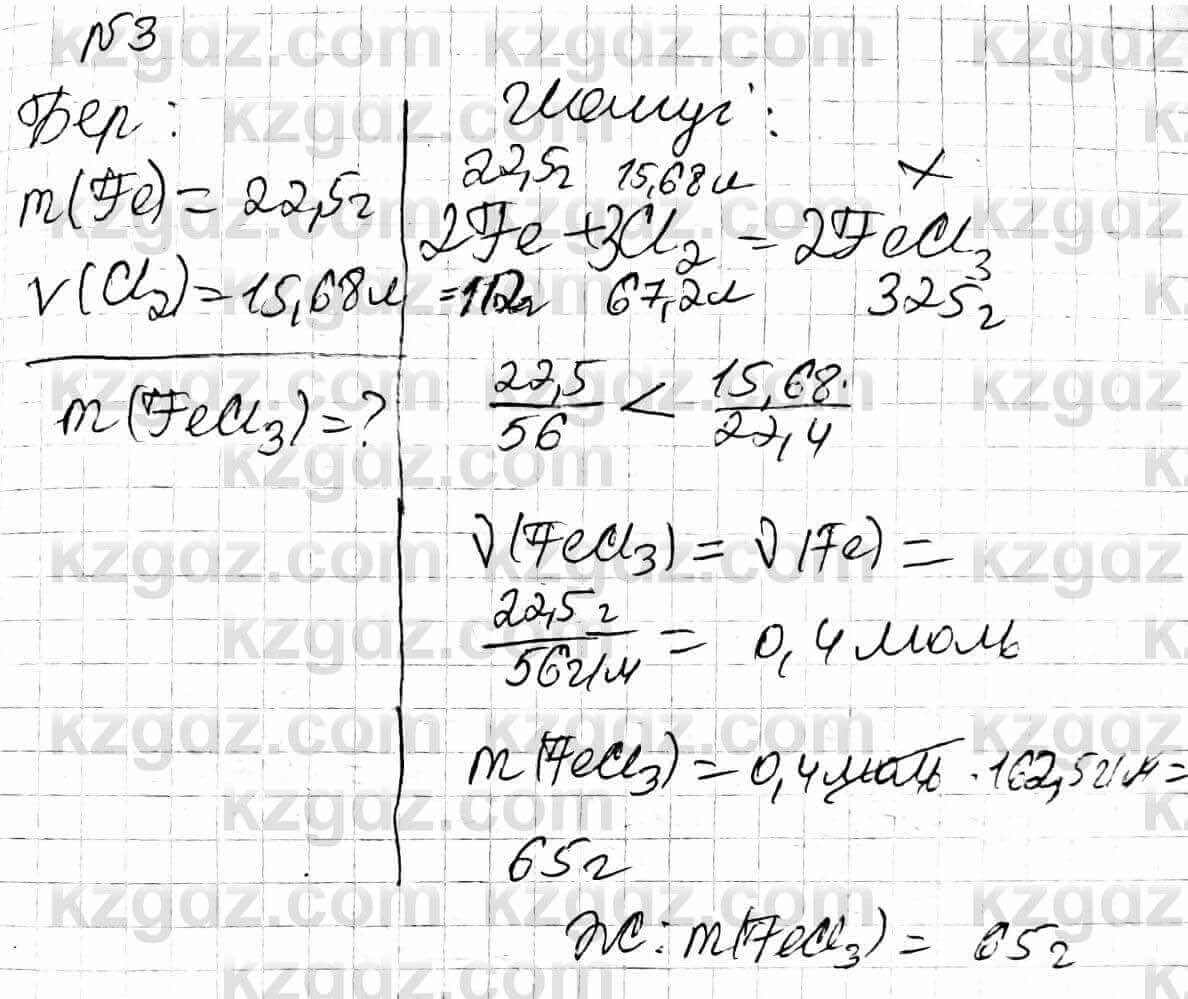 №3
Бер:
m(Fe) = 22,5г
V(Cl₂) = 15,68л
m(FeCl₃) = ?
Шешуі:
22,5г 15,68л x
2Fe + 3Cl₂ = 2FeCl₃
=112г 67,2л 325г
22,5/56 < 15,68/22,4
ν(FeCl₃) = ν(Fe) =
22,5г/56г/м = 0,4 моль
m(FeCl₃) = 0,4 моль · 162,5г/м =
65г
ЖС: m(FeCl₃) = 65г
kzgdz.com